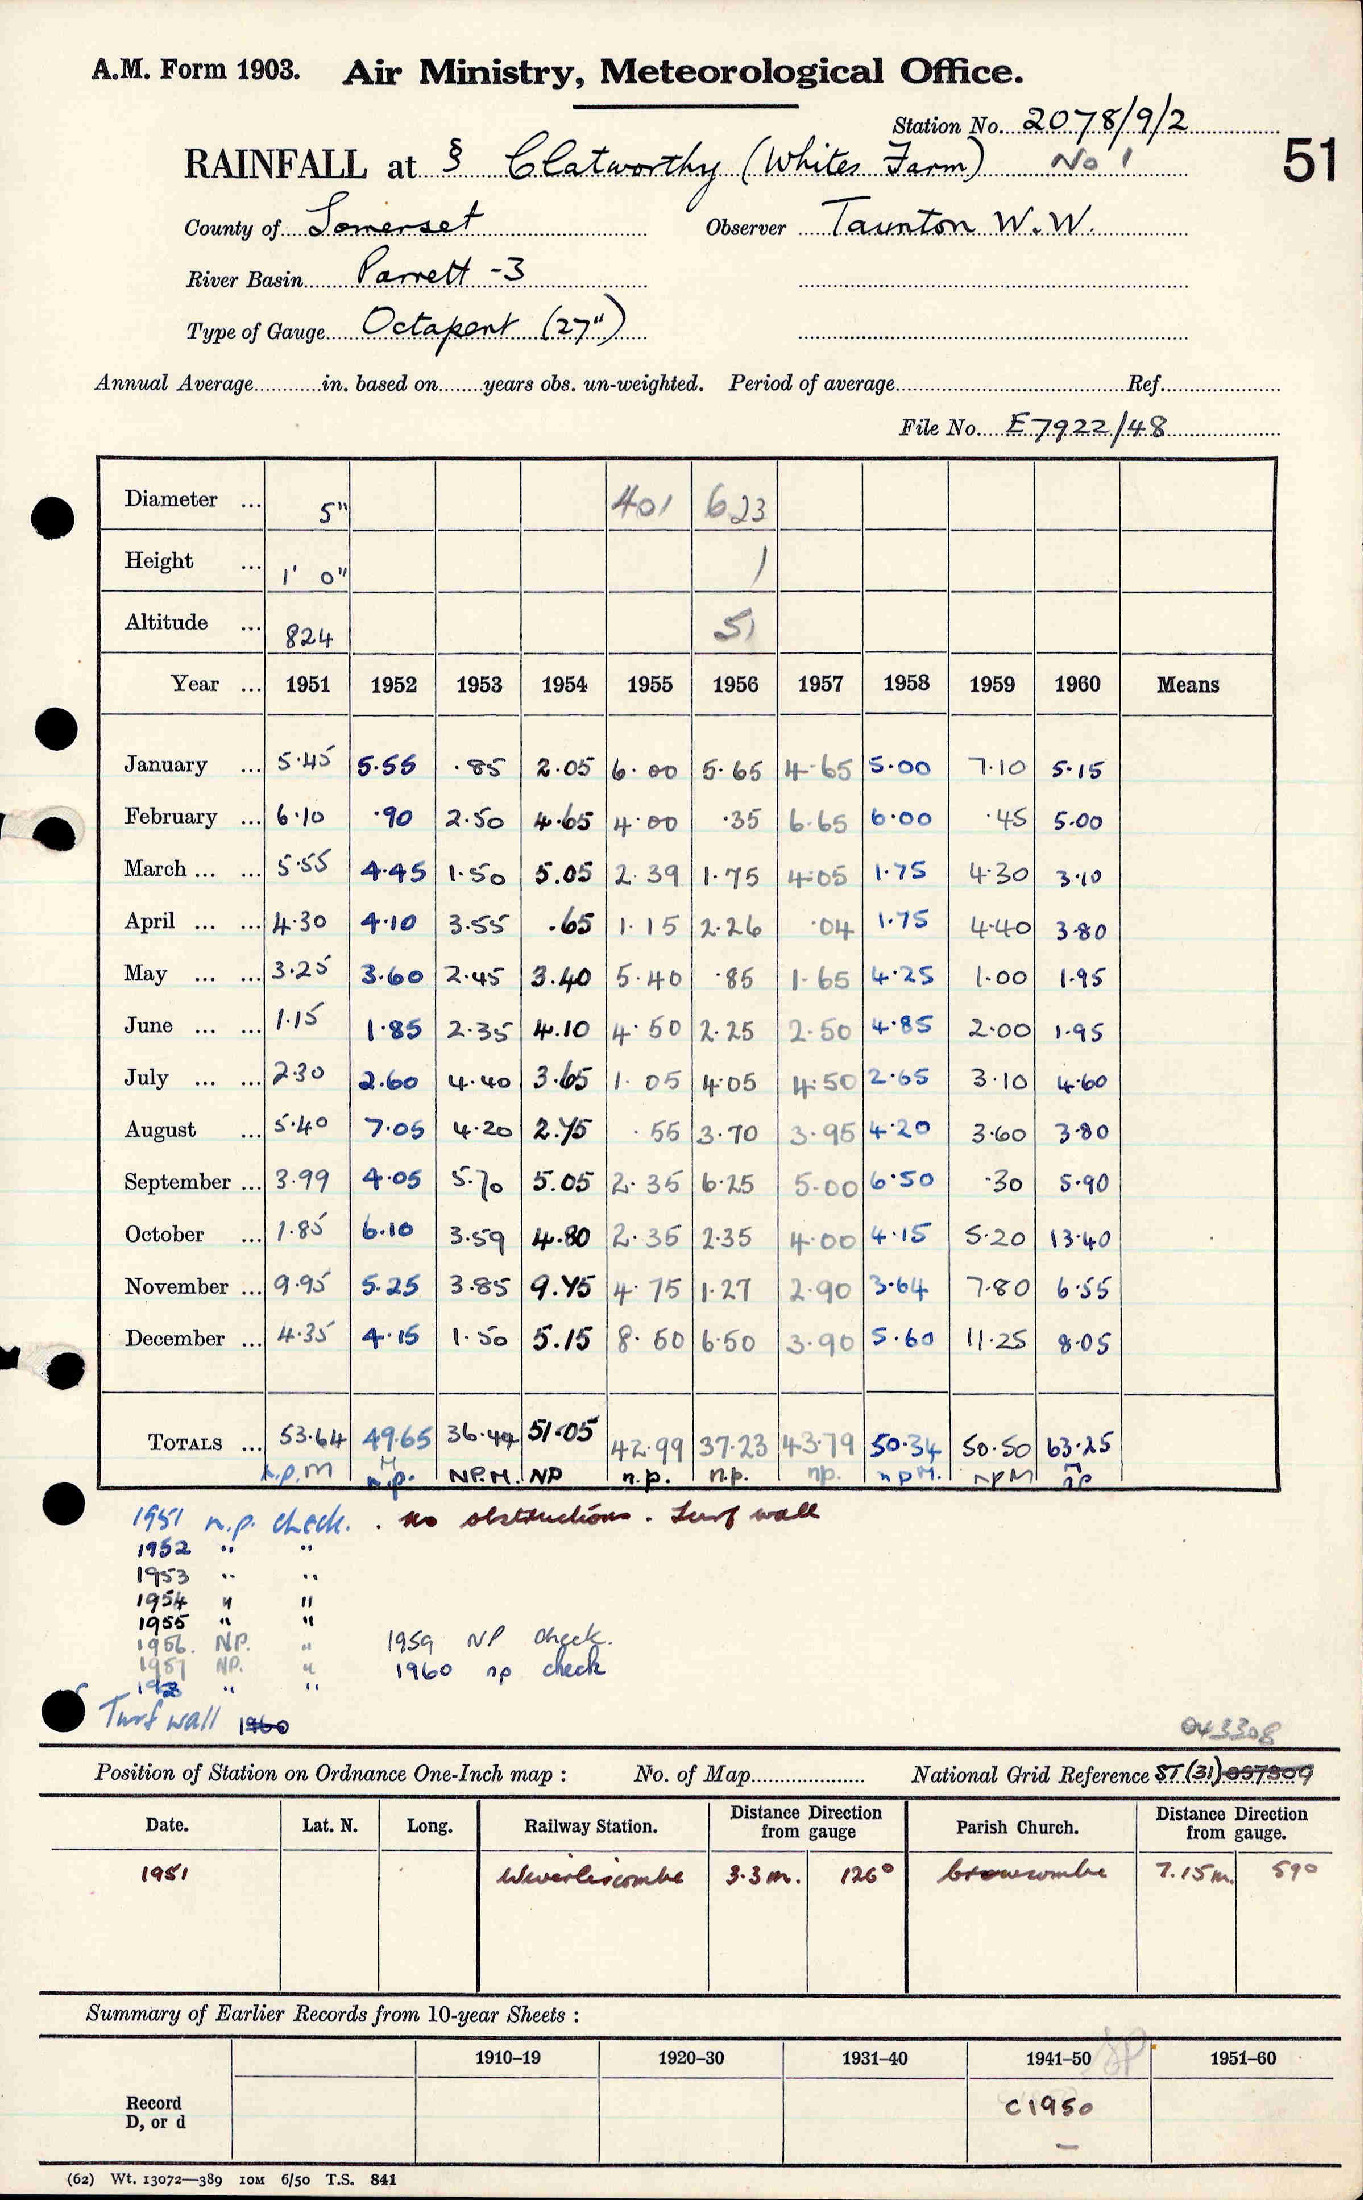 A.M. Form 1903. Air Ministry, Meteorological Office.
Station No. 2078/9/2
RAINFALL at § Clatworthy (Whites Farm) No 1
51
County of Somerset Observer Taunton W.W.
River Basin Parrett -3
Type of Gauge Octapent (27")
Annual Average in. based on years obs. un-weighted. Period of average Ref.
File No. E7922/48
Diameter ... 5" 401 623
Height ... 1' 0" 1
Altitude ... 824 51
Year ... 1951 1952 1953 1954 1955 1956 1957 1958 1959 1960 Means
January ... 5.45 5.55 .85 2.05 6.00 5.65 4.65 5.00 7.10 5.15
February ... 6.10 .90 2.50 4.65 4.00 .35 6.65 6.00 .45 5.00
March ... ... 5.55 4.45 1.50 5.05 2.39 1.75 4.05 1.75 4.30 3.10
April ... ... 4.30 4.10 3.55 .65 1.15 2.26 .04 1.75 4.40 3.80
May ... ... 3.25 3.60 2.45 3.40 5.40 .85 1.65 4.25 1.00 1.95
June ... ... 1.15 1.85 2.35 4.10 4.50 2.25 2.50 4.85 2.00 1.95
July ... ... 2.30 2.60 4.40 3.65 1.05 4.05 4.50 2.65 3.10 4.60
August ... 5.40 7.05 4.20 2.75 .55 3.70 3.95 4.20 3.60 3.80
September ... 3.99 4.05 5.70 5.05 2.35 6.25 5.00 6.50 .30 5.90
October ... 1.85 6.10 3.59 4.80 2.35 2.35 4.00 4.15 5.20 13.40
November ... 9.95 5.25 3.85 9.75 4.75 1.27 2.90 3.64 7.80 6.55
December ... 4.35 4.15 1.50 5.15 8.50 6.50 3.90 5.60 11.25 8.05
TOTALS ... 53.64 49.65 36.44 51.05 42.99 37.23 43.79 50.34 50.50 63.25
n.p.M M n.p. NP.M. NP n.p. n.p. np. npM. npM M np
1951 n.p. check. . no obstructions. Turf wall
1952 " "
1953 " "
1954 " "
1955 " "
1956. NP. " 1959 NP check.
1957 NP. " 1960 np check
" "
Turf wall 1960
043308
Position of Station on Ordnance One-Inch map : No. of Map National Grid Reference ST (31) 057309
Date. Lat. N. Long. Railway Station. Distance Direction from gauge Parish Church. Distance Direction from gauge.
1951 Wiveliscombe 3.3 m. 126° 7.15 m. 59°
Summary of Earlier Records from 10-year Sheets :
1910–19 1920–30 1931–40 1941–50 1951–60
Record
D, or d
C1950
–
(62) Wt. 13072—389 10M 6/50 T.S. 841